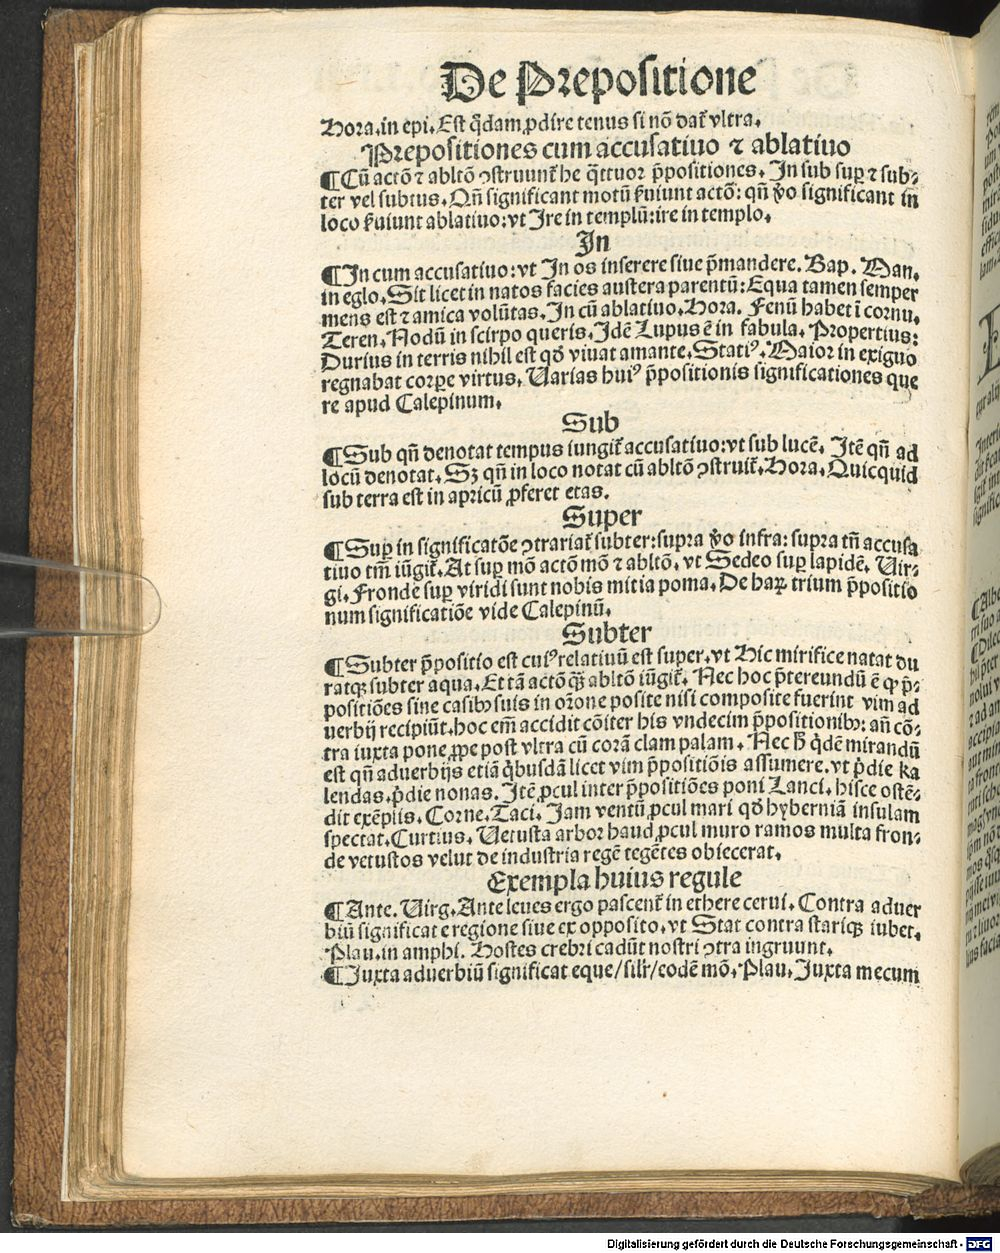 De Prepositione
Hora. in epi. Est q̄dam ꝓdire tenus si nō dat̄ vltra.
Prepositiones cum accusatiuo ⁊ ablatiuo
¶ Cū actō ⁊ abltō ꝯstruunt̄ he q̄ttuor p̄positiones. In sub suꝑ ⁊ sub⸗
ter vel subtus. Qn̄ significant motū ẜuiunt actō: qn̄ ꝟo significant in
loco ẜuiunt ablatiuo: vt Ire in templū: ire in templo.
In
¶ In cum accusatiuo: vt In os inserere siue p̄mandere. Bap. Man.
in eglo. Sit licet in natos facies austera parentū: Equa tamen semper
mens est ⁊ amica volūtas. In cū ablatiuo. Hora. Fenū habet ī cornu.
Teren. Nodū in scirpo queris. Idē Lupus ē in fabula. Propertius:
Durius in terris nihil est qđ viuat amante. Statiꝰ. Maior in exiguo
regnabat corꝑe virtus. Uarias huiꝰ p̄positionis significationes que
re apud Calepinum.
Sub
¶ Sub qn̄ denotat tempus iungit̄ accusatiuo: vt sub lucē. Itē qn̄ ad
locū denotat. Sꝫ qn̄ in loco notat cū abltō ꝯstruit̄. Hora. Quicquid
sub terra est in apricū ꝓferet etas.
Super
¶ Suꝑ in significatōe ꝯtrariat̄ subter: supra ꝟo infra: supra tn̄ accusa
tiuo tm̄ iūgit̄. At suꝑ mō actō mō ⁊ abltō. vt Sedeo suꝑ lapidē. Uir⸗
gi. Fronde suꝑ viridi sunt nobis mitia poma. De haꝝ trium p̄positio
num significatiōe vide Calepinū.
Subter
¶ Subter p̄positio est cuiꝰ relatiuū est super. vt Hic mirifice natat du
ratqꝫ subter aqua. Et tā actō qꝫ̄ abltō iūgit̄. Nec hoc p̄tereundū ē ꝙ p̄⸗
positiōes sine casibꝫ suis in or̄one posite nisi composite fuerint vim ad
uerbij recipiūt. hoc em̄ accidit cōiter his vndecim p̄positionibꝫ: an̄ cō⸗
tra iuxta pone ꝓpe post vltra cū corā clam palam. Nec h̄ q̇dē mirandū
est qn̄ aduerbijs etiā q̇busdā licet vim p̄positiōis assumere. vt ṗdie ka
lendas. ṗdie nonas. Itē ꝓcul inter p̄positiōes poni Lanci. hisce ostē⸗
dit exēplis. Corne. Taci. Iam ventū ꝓcul mari qđ hyberniā insulam
spectat. Curtius. Uetusta arbor haud ꝓcul muro ramos multa fron⸗
de vetustos velut de industria regē tegētes obiecerat.
Exempla huius regule
¶ Ante. Uirg. Ante leues ergo pascent̄ in ethere cerui. Contra aduer
biū significat e regione siue ex opposito. vt Stat contra stariqꝫ iubet.
Plau. in amphi. Hostes crebri cadūt nostri ꝯtra ingruunt.
¶ Iuxta aduerbiū significat eque/silr̄/eodē mō. Plau. Iuxta mecum
Digitalisierung gefördert durch die Deutsche Forschungsgemeinschaft - DFG